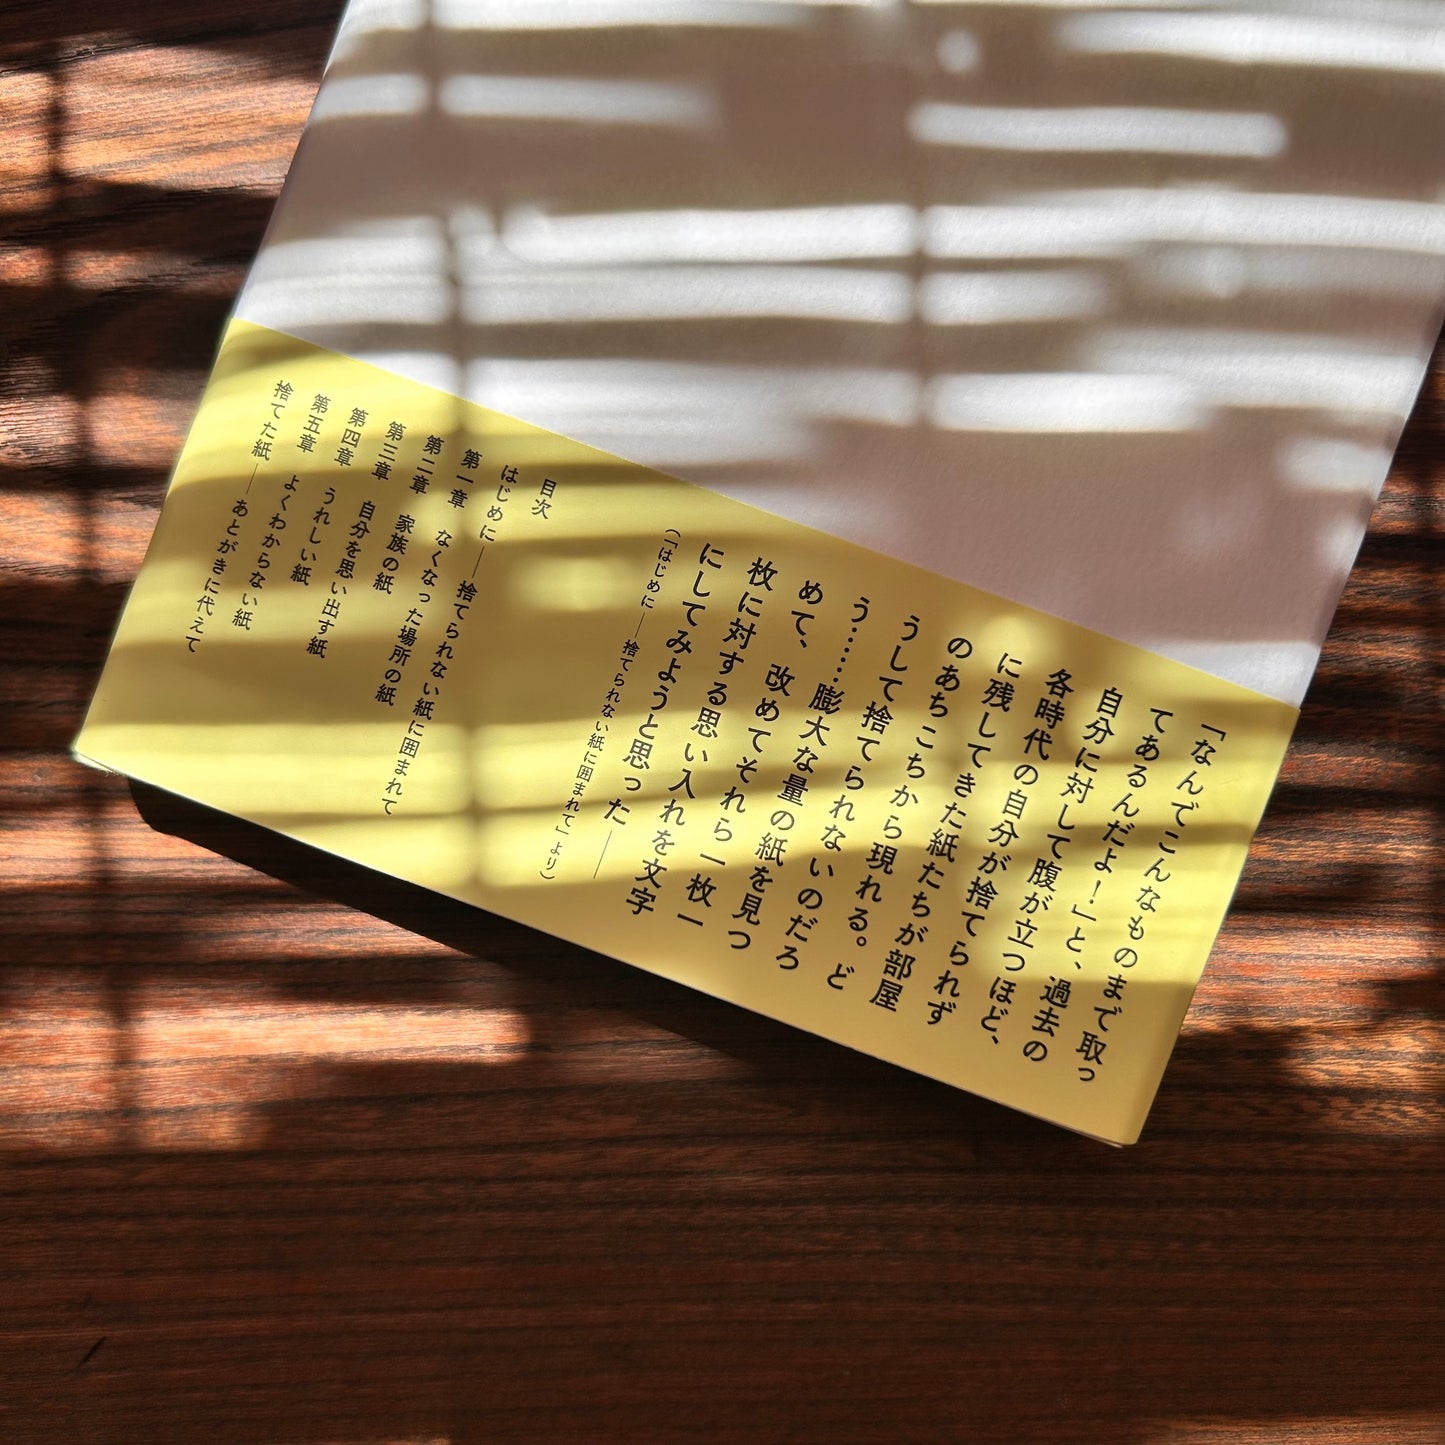 「なんでこんなものまで取っ
てあるんだよ！」と、過去の
自分に対して腹が立つほど、
各時代の自分が捨てられず
に残してきた紙たちが部屋
のあちこちから現れる。ど
うして捨てられないのだろ
う……膨大な量の紙を見つ
めて、改めてそれら一枚一
枚に対する思い入れを文字
にしてみようと思った――
（「はじめに――捨てられない紙に囲まれて」より）
目次
はじめに――捨てられない紙に囲まれて
第一章　なくなった場所の紙
第二章　家族の紙
第三章　自分を思い出す紙
第四章　うれしい紙
第五章　よくわからない紙
捨てた紙――あとがきに代えて